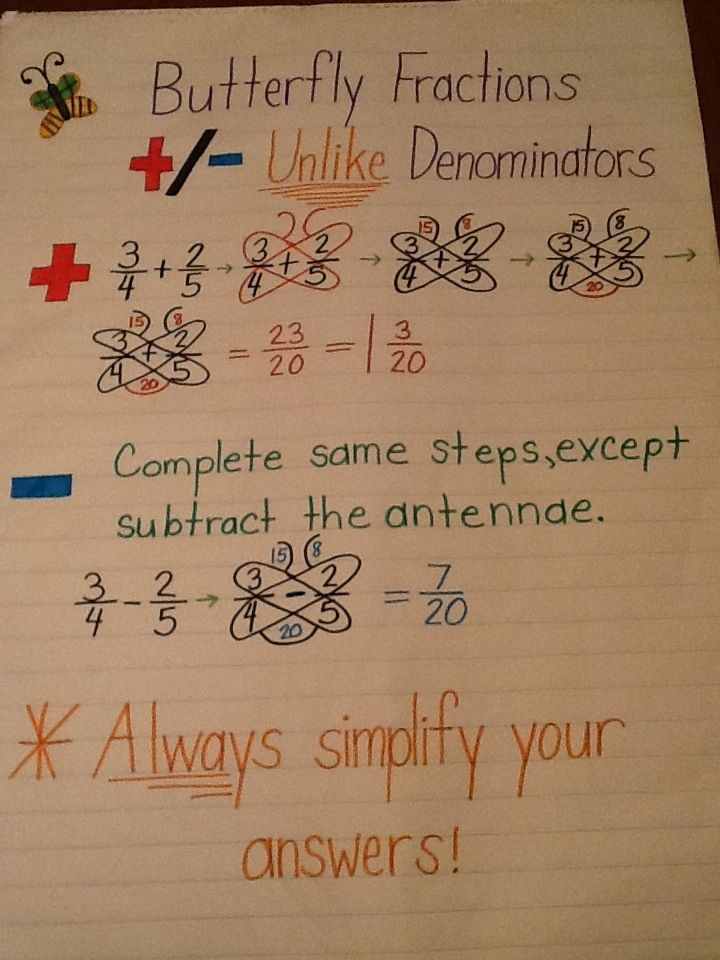 Butterfly Fractions
+/- Unlike Denominators
+ 3/4 + 2/5 → 3/4 + 2/5 → 15 8 3/4 + 2/5 → 15 8 3/4 + 2/5 20 →
15 8 3/4 + 2/5 20 = 23/20 = 1 3/20
- Complete same steps, except
subtract the antennae.
3/4 - 2/5 → 15 8 3/4 - 2/5 20 = 7/20
* Always simplify your
answers!